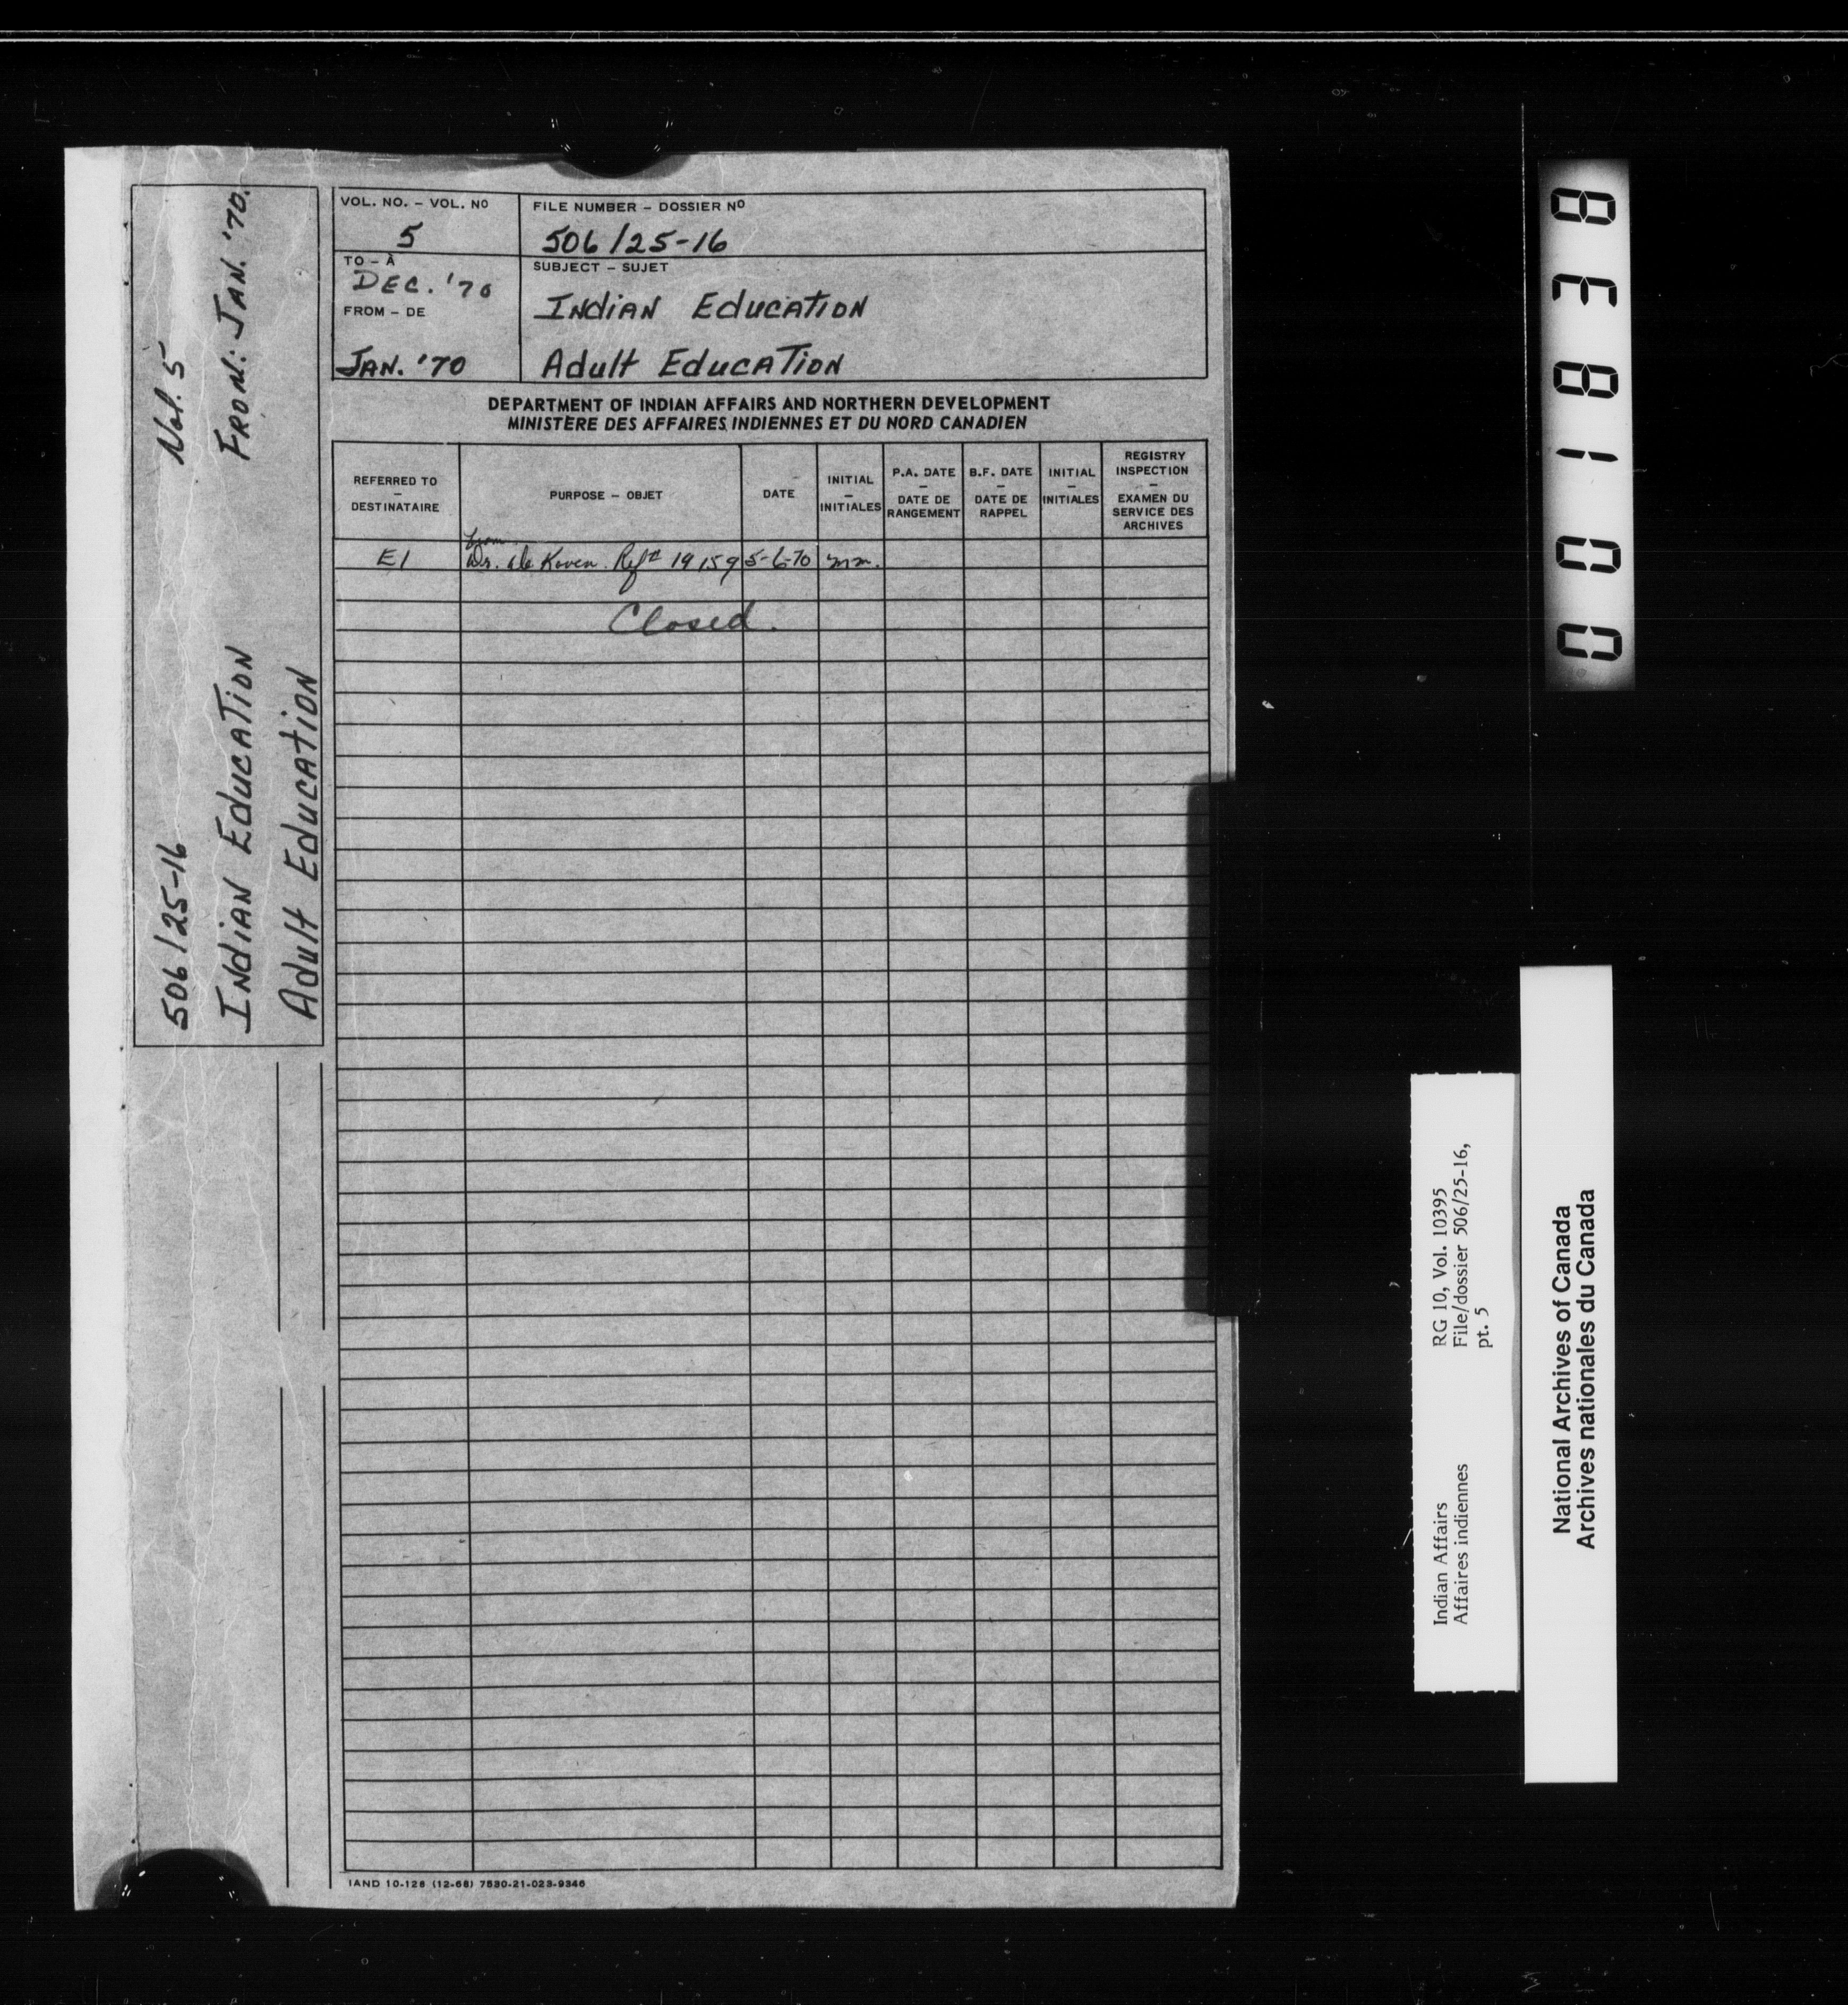 VOL. NO. – VOL. NO
5
FILE NUMBER – DOSSIER Nº
506/25-16
TO – À
DEC. '70
FROM – DE
JAN. '70
SUBJECT – SUJET
Indian Education
Adult Education
DEPARTMENT OF INDIAN AFFAIRS AND NORTHERN DEVELOPMENT
MINISTÈRE DES AFFAIRES INDIENNES ET DU NORD CANADIEN
REFERRED TO
–
DESTINATAIRE
PURPOSE – OBJET
DATE
INITIAL
–
INITIALES
P.A. DATE
–
DATE DE
RANGEMENT
B.F. DATE
–
DATE DE
RAPPEL
INITIAL
–
INITIALES
REGISTRY
INSPECTION
–
EXAMEN DU
SERVICE DES
ARCHIVES
from
E1 Dr. de Koven. Ref# 19159 5-6-70 mm.
Closed.
IAND 10-128 (12-68) 7530-21-023-9346
506/25-16 Vol. 5
Indian Education From: Jan. '70.
Adult Education
001838
Indian Affairs RG 10, Vol. 10395
Affaires indiennes File/dossier 506/25-16,
pt. 5
National Archives of Canada
Archives nationales du Canada